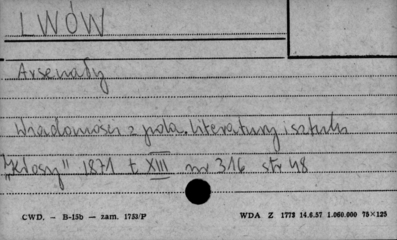 LWÓW
Arsenały
Wiadomości z pola literatury i sztuki
"Kłosy" 1871 t XIII nr 316 str 48
CWD. — B-15b — zam. 1753/P
WDA Z 1773 14.6.57 1.060.000 75×125